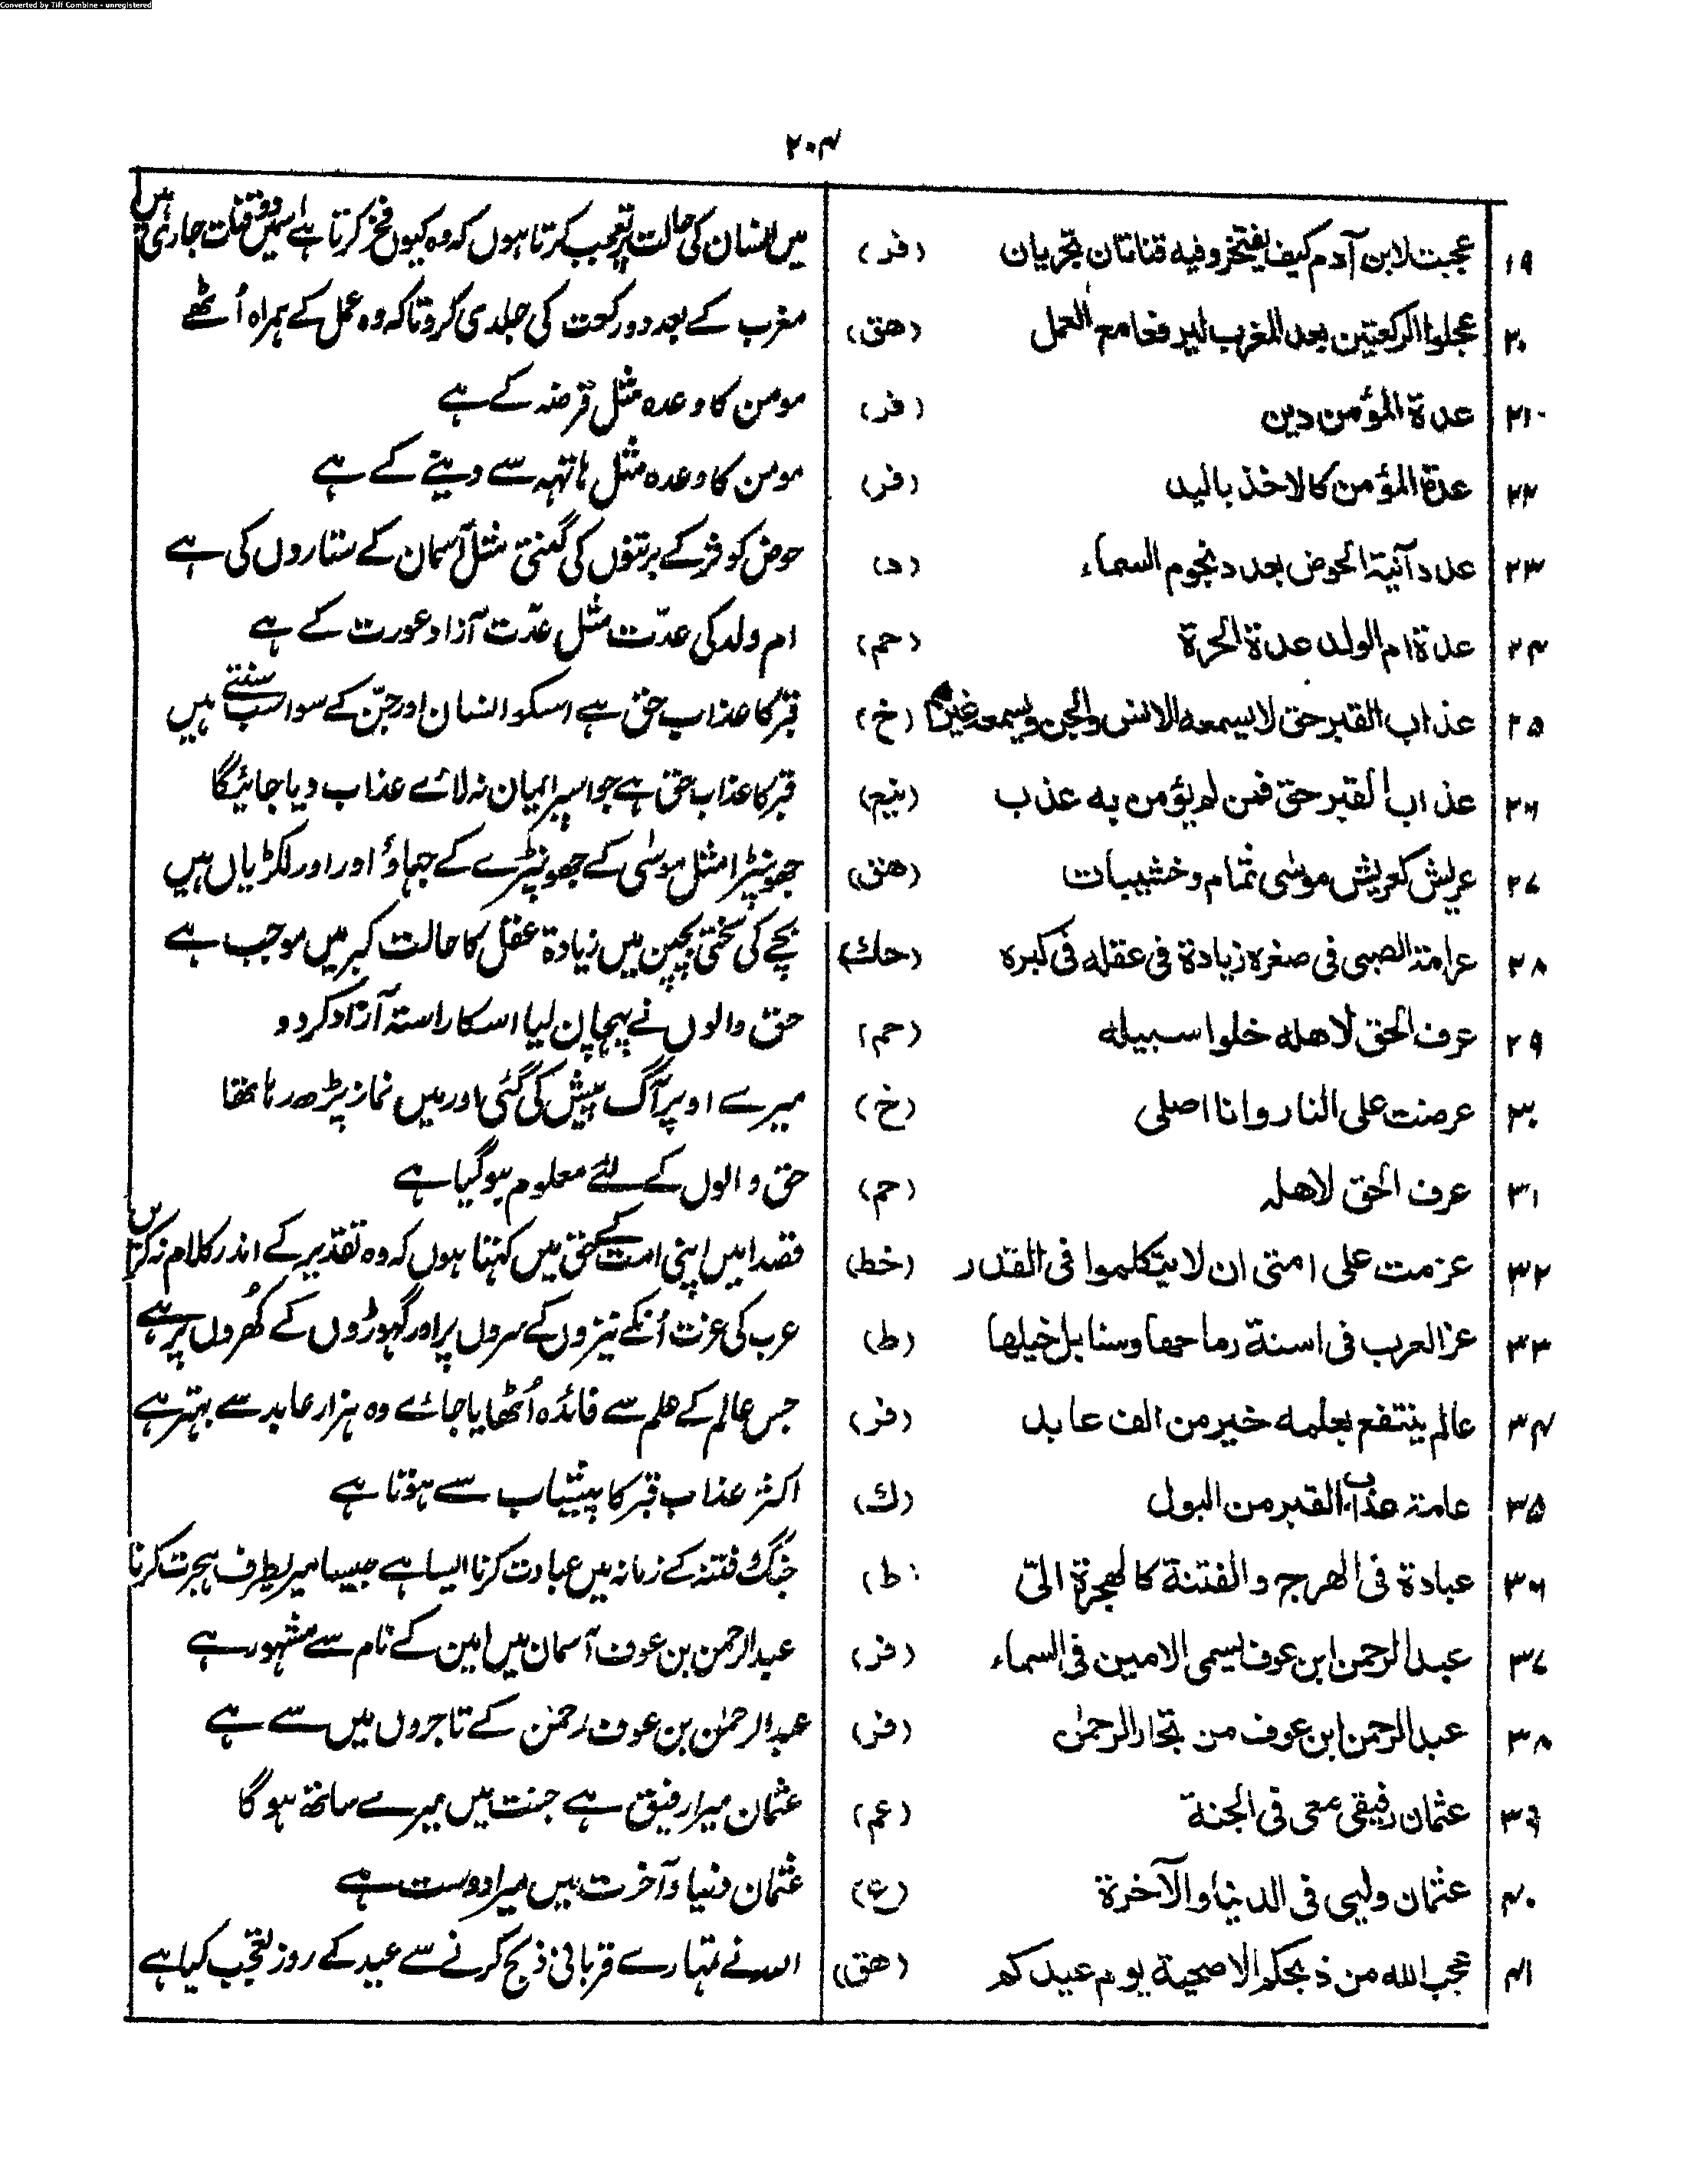 Converted by Tiff Combine - unregistered
۲۰۴
۱۹ عجبت لابن آدم کیف یفتخر وفیه قناتان تجریان (فر) میں انسان کی حالت پر تعجب کرتا ہوں کہ وہ کیوں فخر کرتا ہے اسمیں دو قنات جاری ہیں
۲۰ عجلوا الرکعتین بعد المغرب لیرفعا مع العمل (هق) مغرب کے بعد دو رکعت کی جلدی کرو تاکہ وہ عمل کے ہمراہ اُٹھے
۲۱ عدة المؤمن دین (فر) مومن کا وعدہ مثل قرضہ کے ہے
۲۲ عدة المؤمن کالاخذ بالید (فر) مومن کا وعدہ مثل ہاتہہ سے دینے کے ہے
۲۳ عدد آنیة الحوض بعدد نجوم السماء (د) حوض کوثر کے برتنوں کی گنتی مثل آسمان کے ستاروں کی ہے
۲۴ عدة ام الولد عدة الحرة (حم) ام ولد کی عدّت مثل عدّت آزاد عورت کے ہے
۲۵ عذاب القبر حق لا یسمعه الانس والجن ویسمعه غیرهم (خ) قبر کا عذاب حق ہے اسکو انسان اور جنّ کے سوا سب سنتے ہیں
۲۶ عذاب القبر حق فمن لم یؤمن به عذب (منیع) قبر کا عذاب حق ہے جو اسپر ایمان نہ لائے عذاب دیا جائیگا
۲۷ عریش کعریش موسٰی ثمام وخشیبات (هق) جھونپڑا مثل موسٰی کے جھونپڑے کے جہاؤ اور اور لکڑیاں ہیں
۲۸ عرامة الصبی فی صغره زیادة فی عقله فی کبره (حك) بچے کی سختی بچپن میں زیادة عقل کا حالت کبر میں موجب ہے
۲۹ عرف الحق لاهله خلوا سبیله (حم) حق والوں نے پہچان لیا اسکا راستہ آزاد کر دو
۳۰ عرضت علی النار وانا اصلی (خ) میرے اوپر آگ پیش کی گئی اور میں نماز پڑھ رہا تھا
۳۱ عرف الحق لاهله (حم) حق والوں کے لئے معلوم ہو گیا ہے
۳۲ عزمت علی امتی ان لا یتکلموا فی القدر (خط) قصدا میں اپنی امت کے حق میں کہتا ہوں کہ وہ تقدیر کے اندر کلام نہ کریں
۳۳ عز العرب فی اسنة رماحها وسنابل خیلها (ط) عرب کی عزت اُنکے نیزوں کے سروں پر اور گہوڑوں کے کُھروں پر ہے
۳۴ عالم ینتفع بعلمه خیر من الف عابد (فر) جس عالم کے علم سے فائدہ اُٹھایا جائے وہ ہزار عابد سے بہتر ہے
۳۵ عامة عذاب القبر من البول (ك) اکثر عذاب قبر کا پیشاب سے ہوتا ہے
۳۶ عبادة فی الهرج والفتنة کالهجرة الیّ (ط) جنگ فتنہ کے زمانہ میں عبادت کرنا ایسا ہے جیسا میر یطرف ہجرت کرنا
۳۷ عبد الرحمن ابن عوف یسمی الامین فی السماء (فر) عبد الرحمن بن عوف آسمان میں امین کے نام سے مشہور ہے
۳۸ عبد الرحمن ابن عوف من تجار الرحمن (فر) عبد الرحمٰن بن عوف رحمٰن کے تاجروں میں سے ہے
۳۹ عثمان رفیقی معی فی الجنة (عم) عثمان میرا رفیق ہے جنت میں میرے ساتھ ہوگا
۴۰ عثمان ولیی فی الدنیا والآخرة (ع) عثمان دنیا وآخرت میں میرا دوست ہے
۴۱ عجب الله من ذبحکم الاضحیة یوم عیدکم (هق) اللہ نے تمہارے قربانی ذبح کرنے سے عید کے روز تعجب کیا ہے